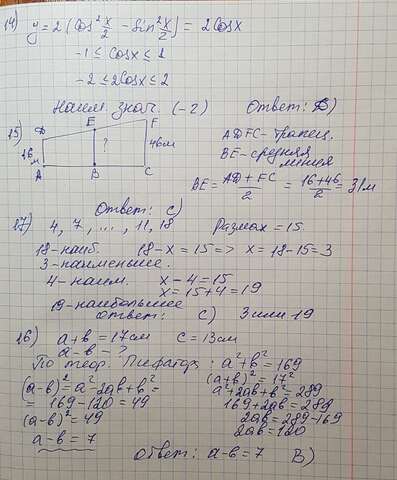 14) y = 2 (cos² x/2 - sin² x/2) = 2cosx
-1 ≤ cosx ≤ 1
-2 ≤ 2cosx ≤ 2
Наим. знач. (-2) Ответ: B)
15) D E F
16 м ? 46м
A B C
ADFC - трапец.
BE - средняя линия
BE = (AD + FC)/2 = (16+46)/2 = 31м
Ответ: C)
17) 4, 7, ..., 11, 18 Размах = 15
18 - наиб. 18 - x = 15 => x = 18-15 = 3
3 - наименьшее.
4 - наим. x - 4 = 15
x = 15+4 = 19
19 - наибольшее
Ответ: C) 3 или 19
16) a+b = 17см c = 13см
a - b - ?
По теор. Пифагора: a²+b² = 169
(a+b)² = 17²
(a-b)² = a² - 2ab + b² = a²+2ab+b² = 289
= 169 - 120 = 49 169 + 2ab = 289
(a-b)² = 49 2ab = 289 - 169
a - b = 7 2ab = 120
Ответ: a-b = 7 B)